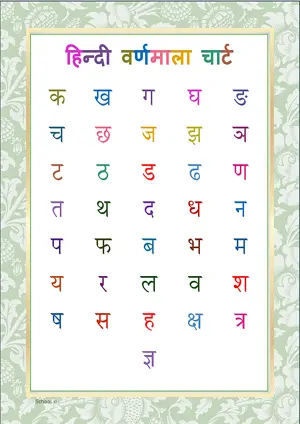 हिन्दी वर्णमाला चार्ट
क ख ग घ ङ
च छ ज झ ञ
ट ठ ड ढ ण
त थ द ध न
प फ ब भ म
य र ल व श
ष स ह क्ष त्र
ज्ञ
School